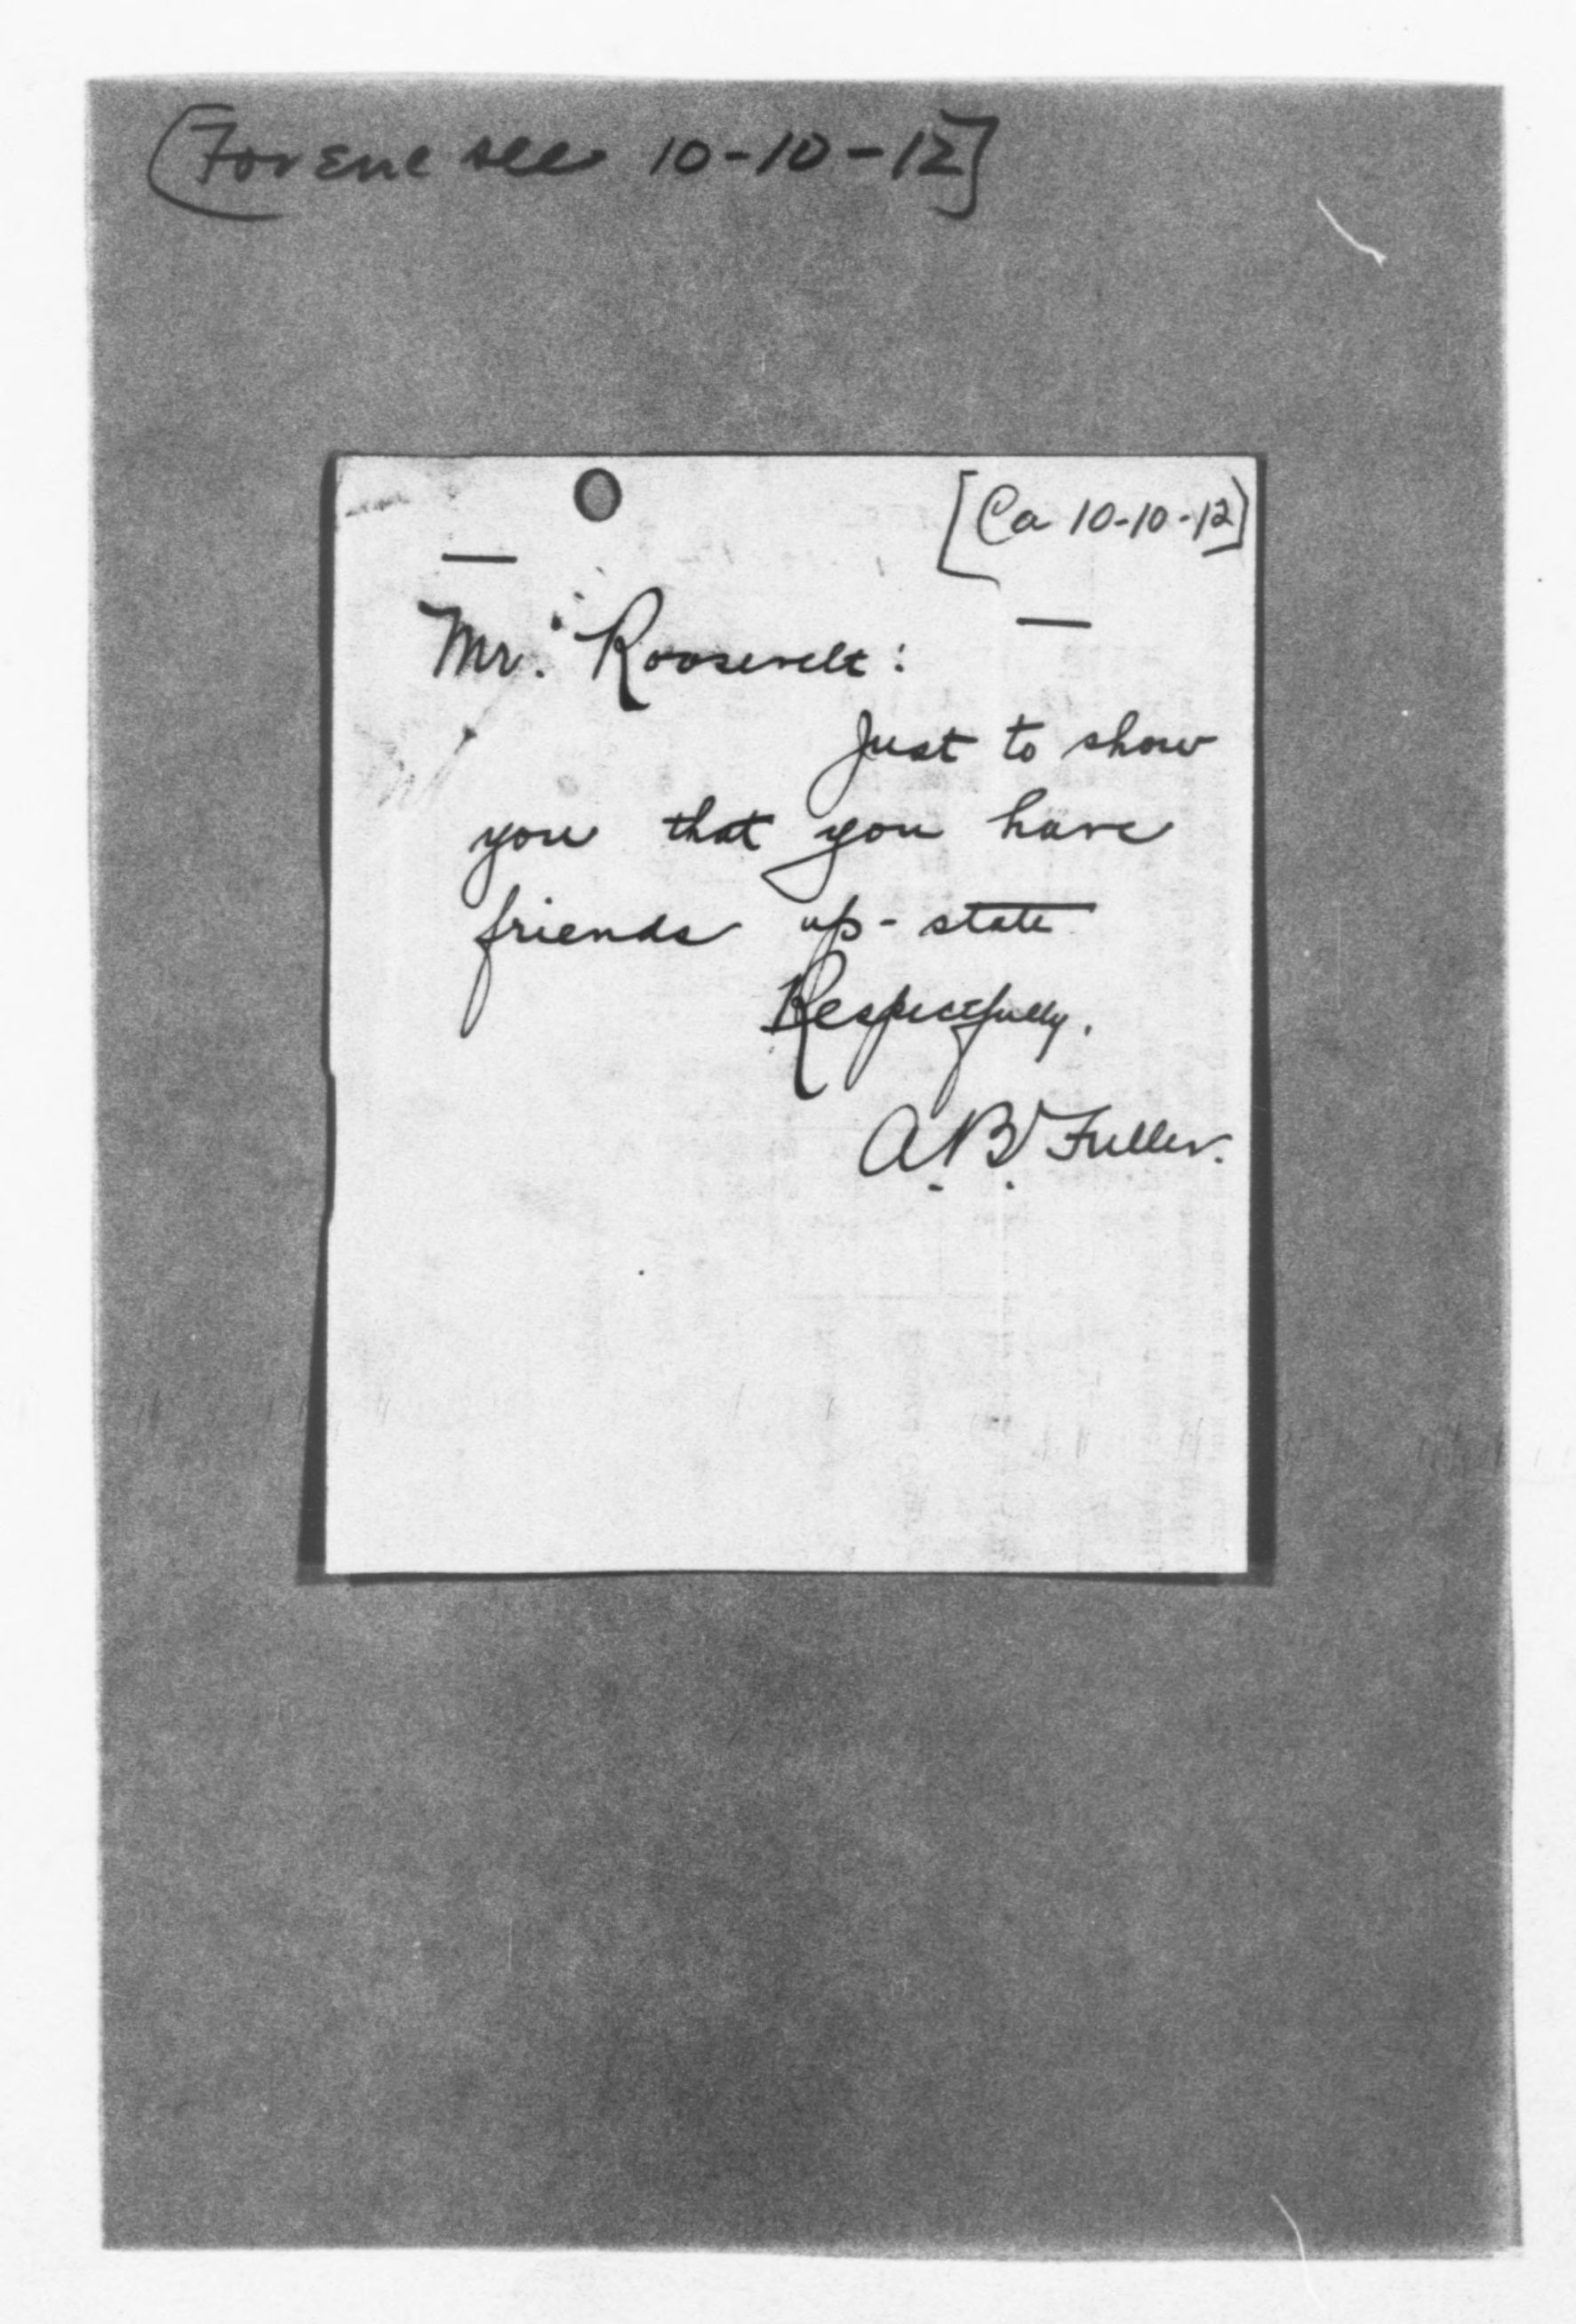 [For enc see 10-10-12]
[Ca 10-10-12]
Mr. Roosevelt:
Just to show
you that you have
friends up-state
Respectfully,
A.B. Fuller.